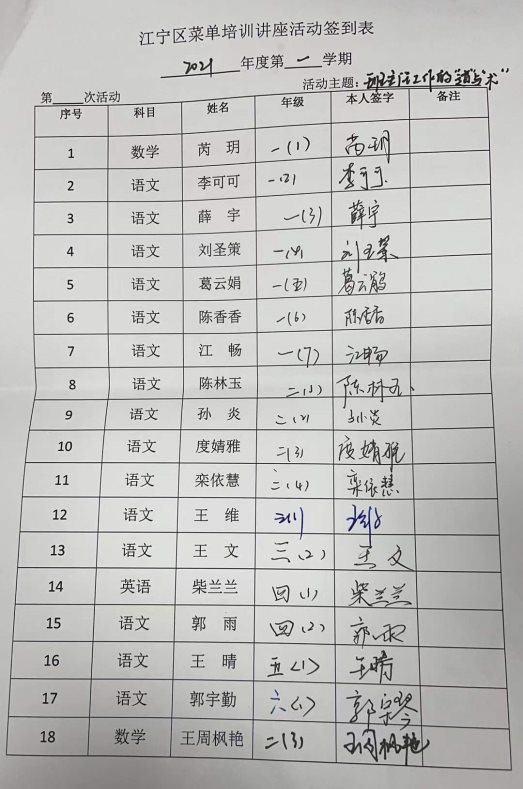 江宁区菜单培训讲座活动签到表
2021 年度第一学期
活动主题：班主任工作的“道”与“术”
第 次活动
序号 科目 姓名 年级 本人签字 备注
1 数学 芮 玥 一(1) 芮玥
2 语文 李可可 一(2) 李可可
3 语文 薛 宇 一(3) 薛宇
4 语文 刘圣策 一(4) 刘圣策
5 语文 葛云娟 一(五) 葛云娟
6 语文 陈香香 一(6) 陈香香
7 语文 江 畅 一(7) 江畅
8 语文 陈林玉 二(1) 陈林玉
9 语文 孙 炎 二(2) 孙炎
10 语文 度婧雅 二(3) 度婧雅
11 语文 栾依慧 二(4) 栾依慧
12 语文 王 维 三(1)
13 语文 王 文 三(2) 王文
14 英语 柴兰兰 四(1) 柴兰兰
15 语文 郭 雨 四(2) 郭雨
16 语文 王 晴 五(1) 王晴
17 语文 郭宇勤 六(1)
18 数学 王周枫艳 二(3) 王周枫艳